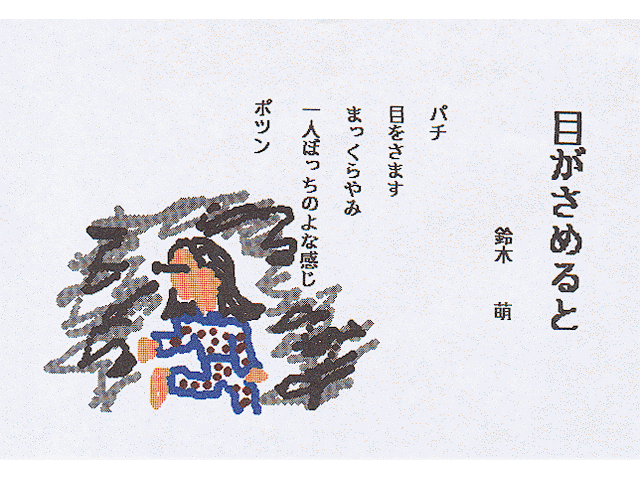 目がさめると
鈴木 萌
パチ
目をさます
まっくらやみ
一人ぼっちのよな感じ
ポツン